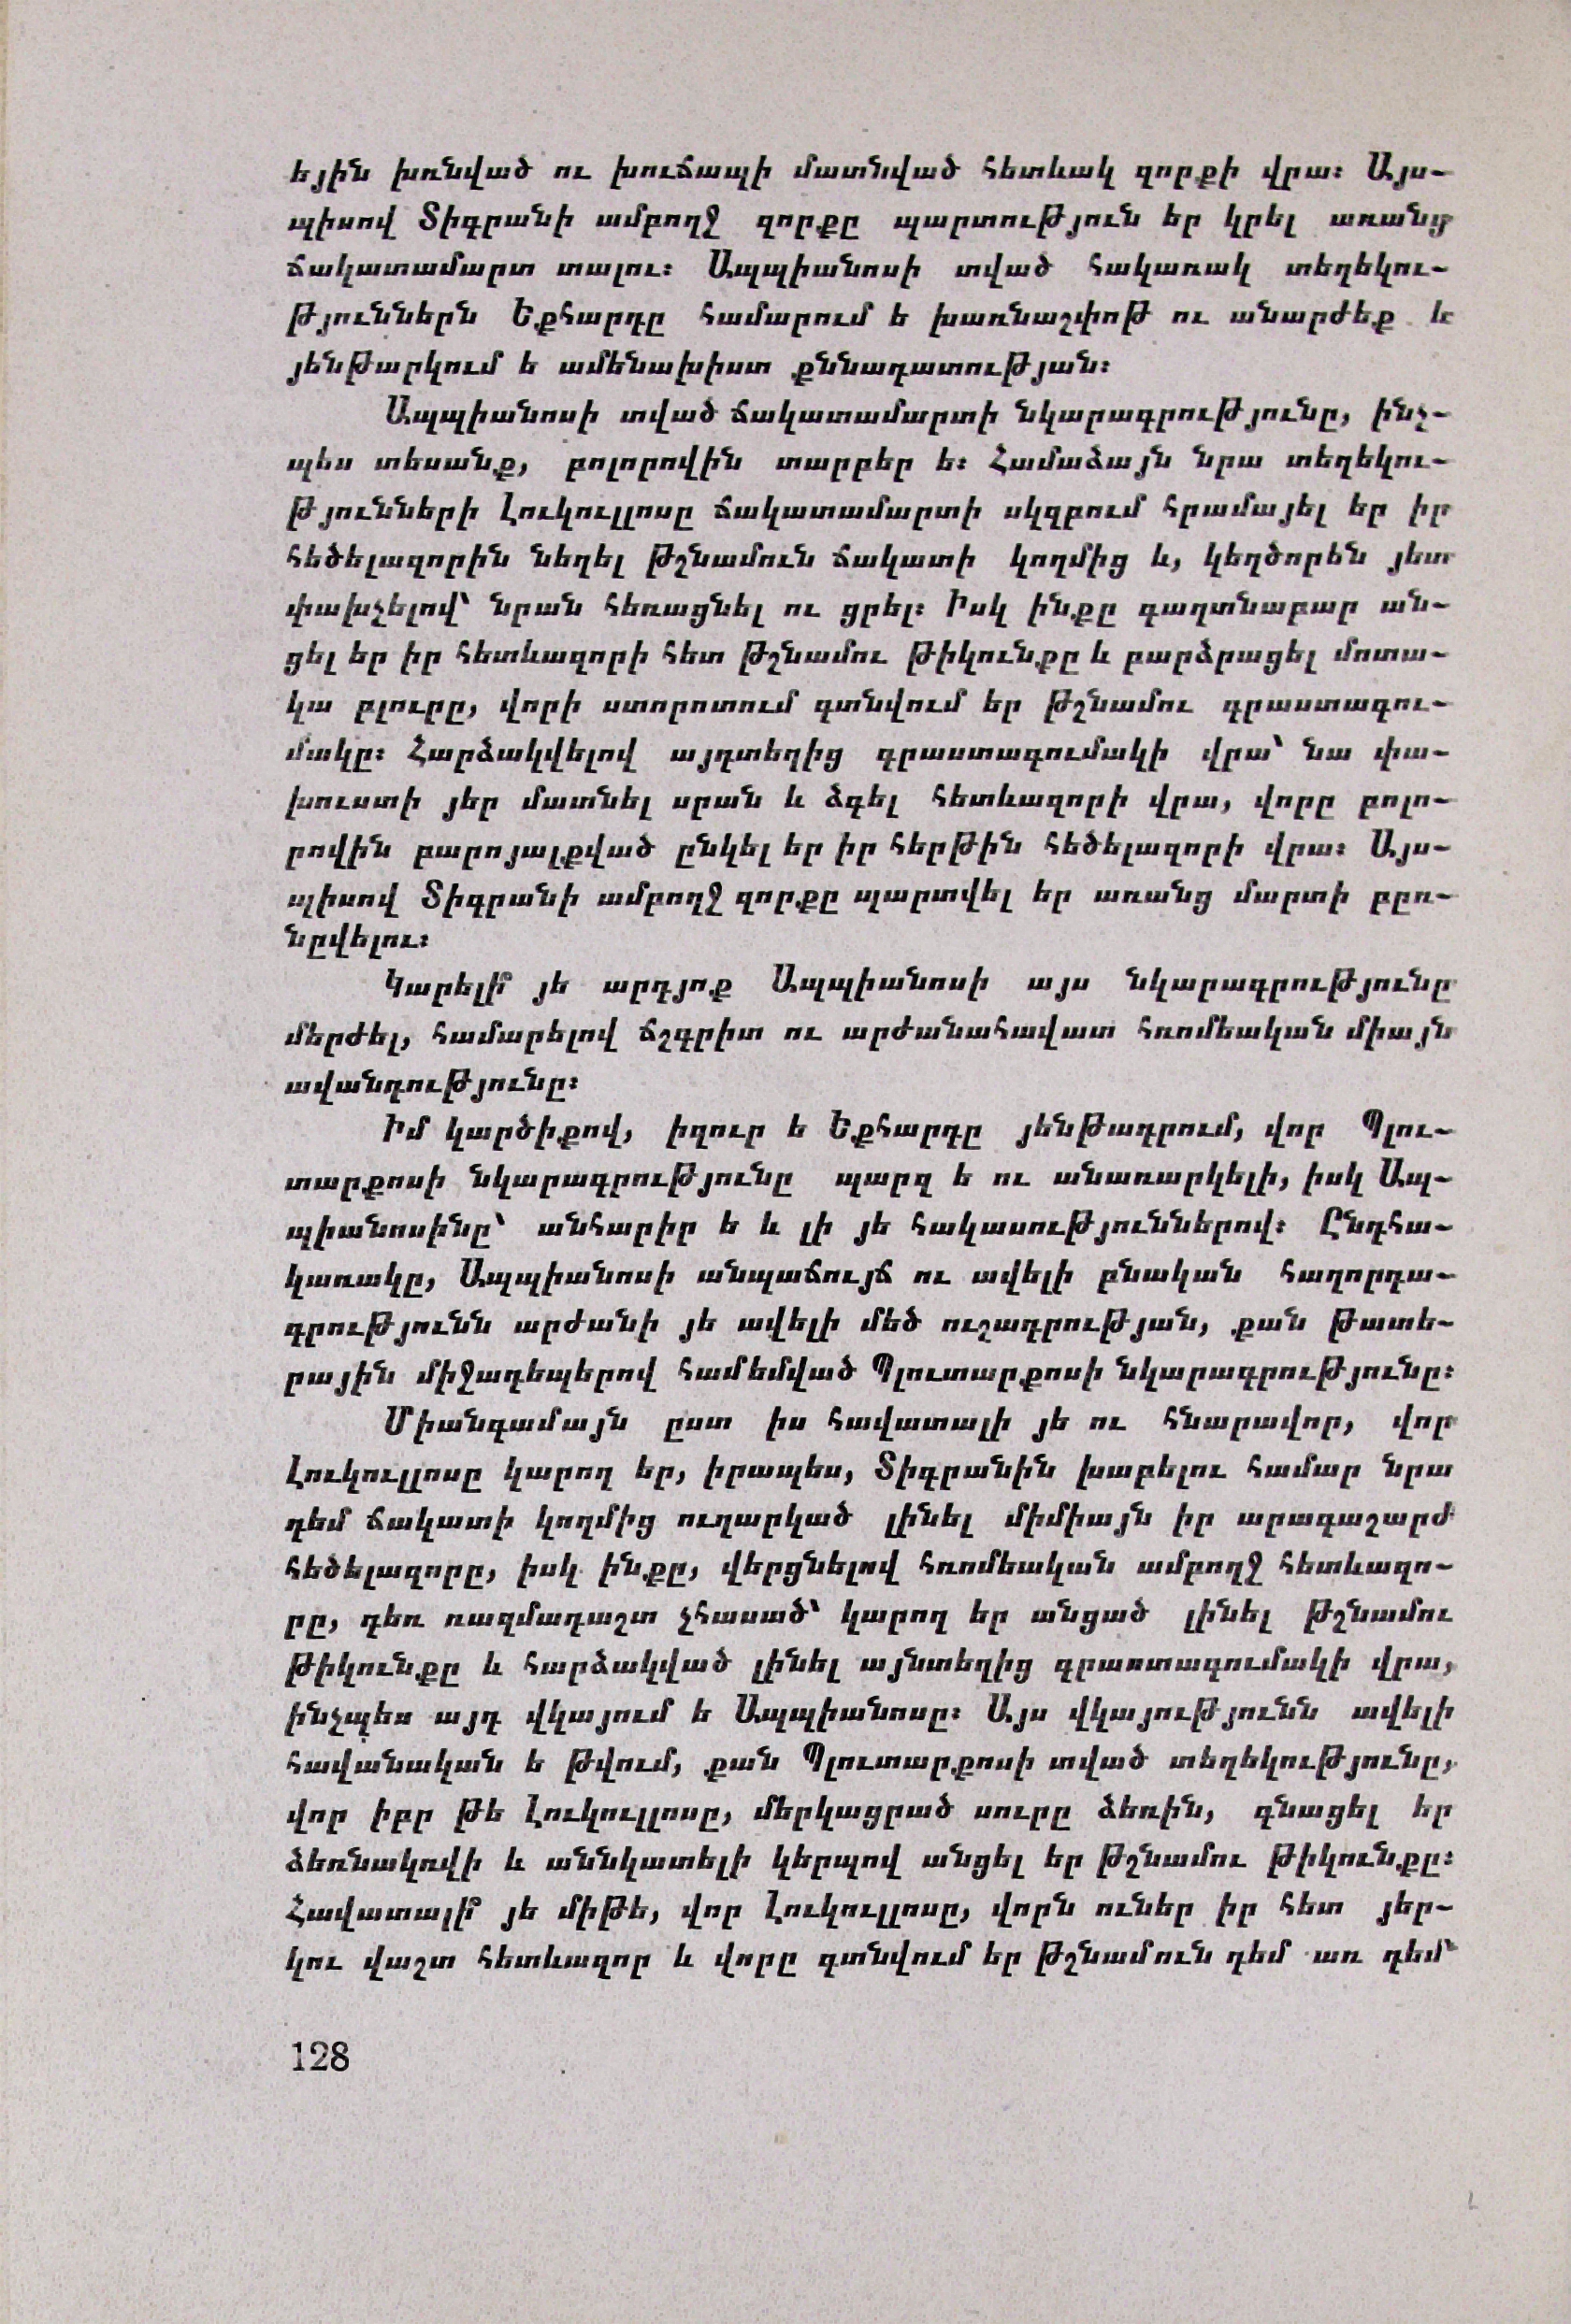 եյին խռնված ու խուճապի մատնված հետևակ զորքի վրա։ Այս-
պիսով Տիգրանի ամբողջ զորքը պարտություն եր կրել առանց
ճակատամարտ տալու։ Ապպիանոսի տված հակառակ տեղեկու-
թյուններն Եքհարդը համարում ե խառնաշփոթ ու անարժեք և
յենթարկում ե ամենախիստ քննադատության։
Ապպիանոսի տված ճակատամարտի նկարագրությունը, ինչ-
պես տեսանք, բոլորովին տարբեր ե։ Համաձայն նրա տեղեկու-
թյունների Լուկուլլոսը ճակատամարտի սկզբում հրամայել եր իր
հեծելազորին նեղել թշնամուն ճակատի կողմից և, կեղծորեն յետ
փախչելով՝ նրան հեռացնել ու ցրել։ Իսկ ինքը գաղտնաբար ան-
ցել եր իր հետևազորի հետ թշնամու թիկունքը և բարձրացել մոտա-
կա բլուրը, վորի ստորոտում գտնվում եր թշնամու գրաստագու-
մակը։ Հարձակվելով այդտեղից գրաստագումակի վրա՝ նա փա-
խուստի յեր մատնել սրան և ձգել հետևազորի վրա, վորը բոլո-
րովին բարոյալքված ընկել եր իր հերթին հեծելազորի վրա։ Այս-
պիսով Տիգրանի ամբողջ զորքը պարտվել եր առանց մարտի բըռ-
նըվելու։
Կարելի՞ յե արդյոք Ապպիանոսի այս նկարագրությունը
մերժել, համարելով ճշգրիտ ու արժանահավատ հռոմեական միայն
ավանդությունը։
Իմ կարծիքով, իզուր ե Եքհարդը յենթադրում, վոր Պլու-
տարքոսի նկարագրությունը պարզ ե ու անառարկելի, իսկ Ապ-
պիանոսինը՝ անհարիր ե և լի յե հակասություններով։ Ընդհա-
կառակը, Ապպիանոսի անպաճույճ ու ավելի բնական հաղորդա-
գրությունն արժանի յե ավելի մեծ ուշադրության, քան թատե-
րային միջադեպերով համեմված Պլուտարքոսի նկարագրությունը։
Միանգամայն ըստ իս հավատալի յե ու հնարավոր, վոր
Լուկուլլոսը կարող եր, իրապես, Տիգրանին խաբելու համար նրա
դեմ ճակատի կողմից ուղարկած լինել միմիայն իր արագաշարժ
հեծելազորը, իսկ ինքը, վերցնելով հռոմեական ամբողջ հետևազո-
րը, դեռ ռազմադաշտ չհասած՝ կարող եր անցած լինել թշնամու
թիկունքը և հարձակված լինել այնտեղից գրաստագումակի վրա,
ինչպես այդ վկայում ե Ապպիանոսը։ Այս վկայությունն ավելի
հավանական ե թվում, քան Պլուտարքոսի տված տեղեկությունը,
վոր իբր թե Լուկուլլոսը, մերկացրած սուրը ձեռին, գնացել եր
ձեռնակռվի և աննկատելի կերպով անցել եր թշնամու թիկունքը։
Հավատալի՞ յե միթե, վոր Լուկուլլոսը, վորն ուներ իր հետ յեր-
կու վաշտ հետևազոր և վորը գտնվում եր թշնամուն դեմ առ դեմ՝
128